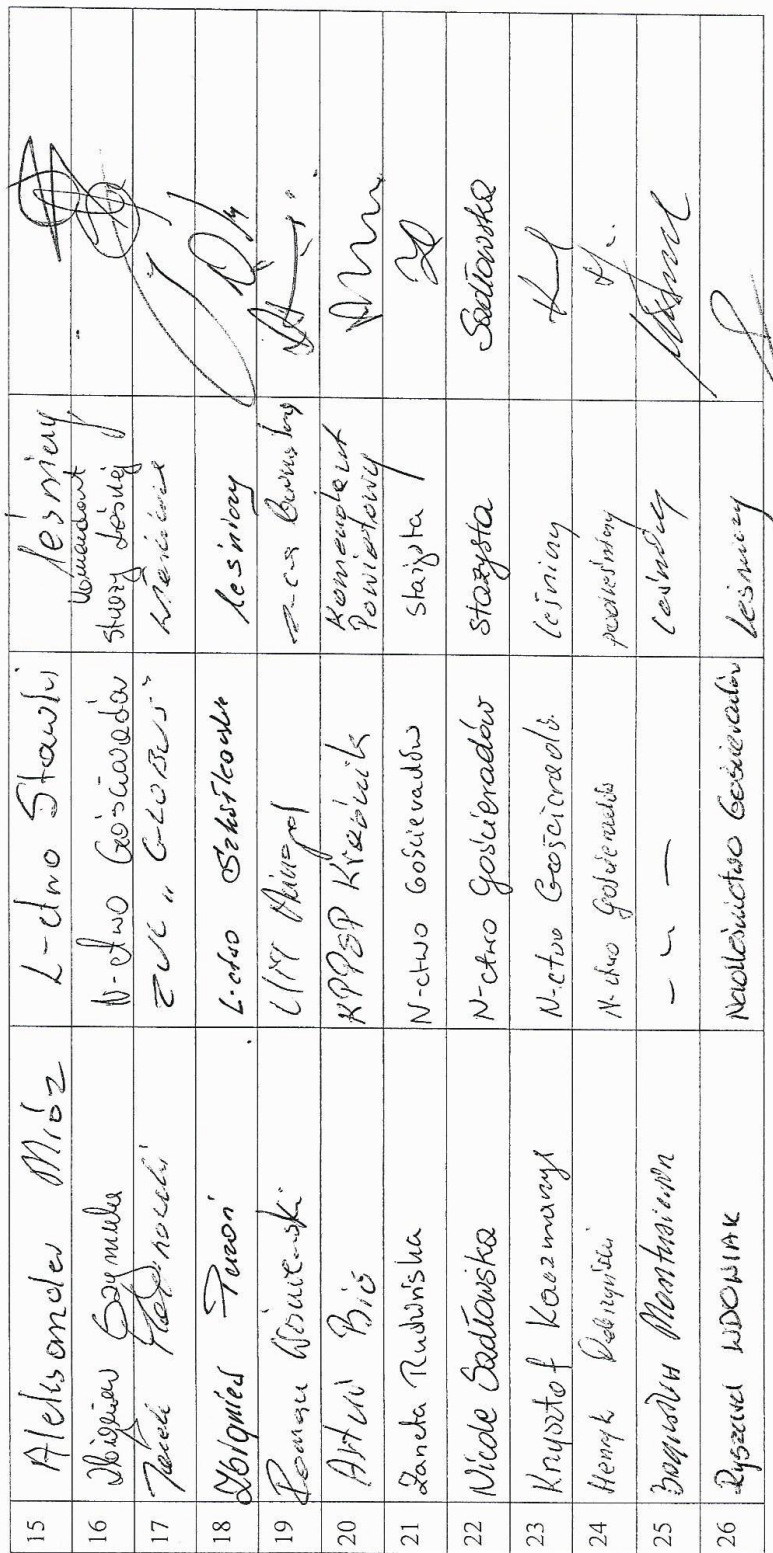 15 Aleksander Mróz L-ctwo Stawki leśniczy
16 Zbigniew Szymula N-ctwo Gościeradów Komendant
Straży Leśnej
17 Jacek ZUL „GLOBUS" właściciel
18 Zbigniew Puzoń L-ctwo leśniczy
19 Roman Wiśniewski UM Annopol
20 Artur Biś KPPSP Kraśnik Komendant
Powiatowy
21 Żaneta Rudwińska N-ctwo Gościeradów stażysta
22 Nicole Sadłowska N-ctwo Gościeradów stażysta Sadłowska
23 Krzysztof Kaczmarzyk N-ctwo Gościeradów leśniczy
24 Henryk N-ctwo Gościeradów podleśniczy
25 Bogusław - " - leśniczy
26 Ryszard WDOWIAK Nadleśnictwo Gościeradów leśniczy